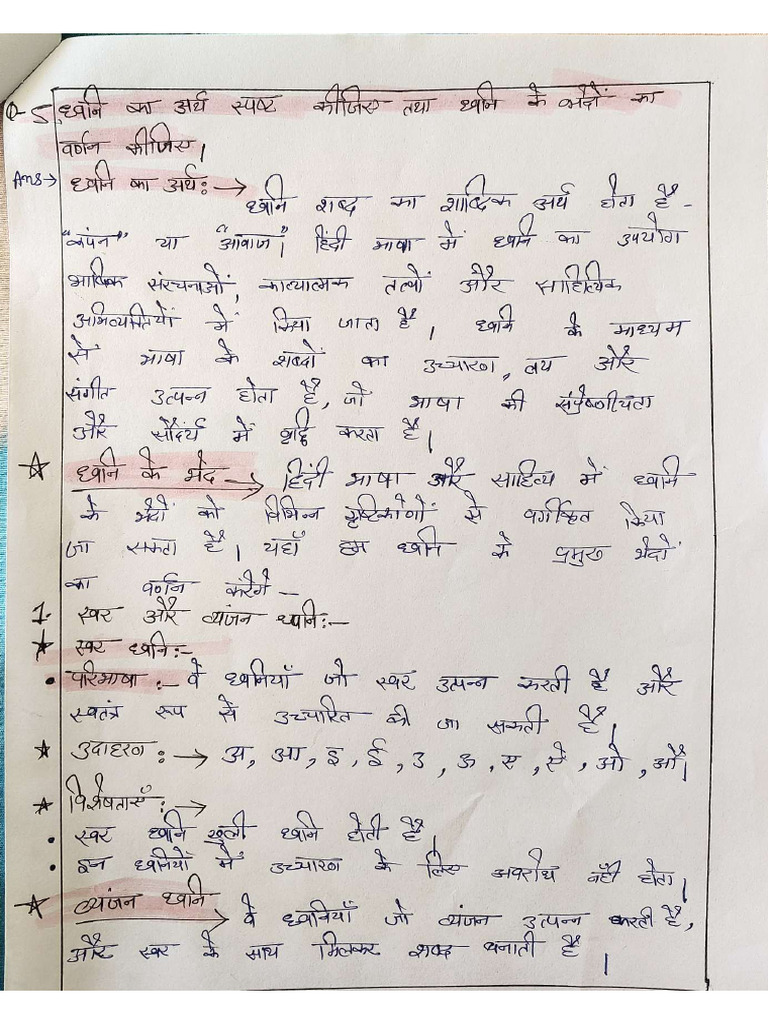 Q-5, ध्वनि का अर्थ स्पष्ट कीजिए तथा ध्वनि के भेदों का
वर्णन कीजिए।
Ans→ ध्वनि का अर्थ:→
ध्वनि शब्द का शाब्दिक अर्थ होता है -
"कंपन" या "आवाज"। हिंदी भाषा में ध्वनि का उपयोग
भाषिक संरचनाओं, काव्यात्मक तत्वों और साहित्यिक
अभिव्यक्तियों में किया जाता है। ध्वनि के माध्यम
से भाषा के शब्दों का उच्चारण, लय और
संगीत उत्पन्न होता है, जो भाषा की संप्रेषणीयता
और सौंदर्य में वृद्धि करता है।
☆ ध्वनि के भेद → हिंदी भाषा और साहित्य में ध्वनि
के भेदों को विभिन्न दृष्टिकोणों से वर्गीकृत किया
जा सकता है। यहाँ हम ध्वनि के प्रमुख भेदों
का वर्णन करेंगे -
1. स्वर और व्यंजन ध्वनि:-
★ स्वर ध्वनि:-
• परिभाषा:- वे ध्वनियाँ जो स्वर उत्पन्न करती है और
स्वतंत्र रूप से उच्चारित की जा सकती है।
★ उदाहरण:→ अ, आ, इ, ई, उ, ऊ, ए, ऐ, ओ, औ।
★ विशेषताएँ:→
• स्वर ध्वनि खुली ध्वनि होती है।
• इन ध्वनियों में उच्चारण के लिए अवरोध नहीं होता।
☆ व्यंजन ध्वनि → वे ध्वनियाँ जो व्यंजन उत्पन्न करती है,
और स्वर के साथ मिलकर शब्द बनाती है।